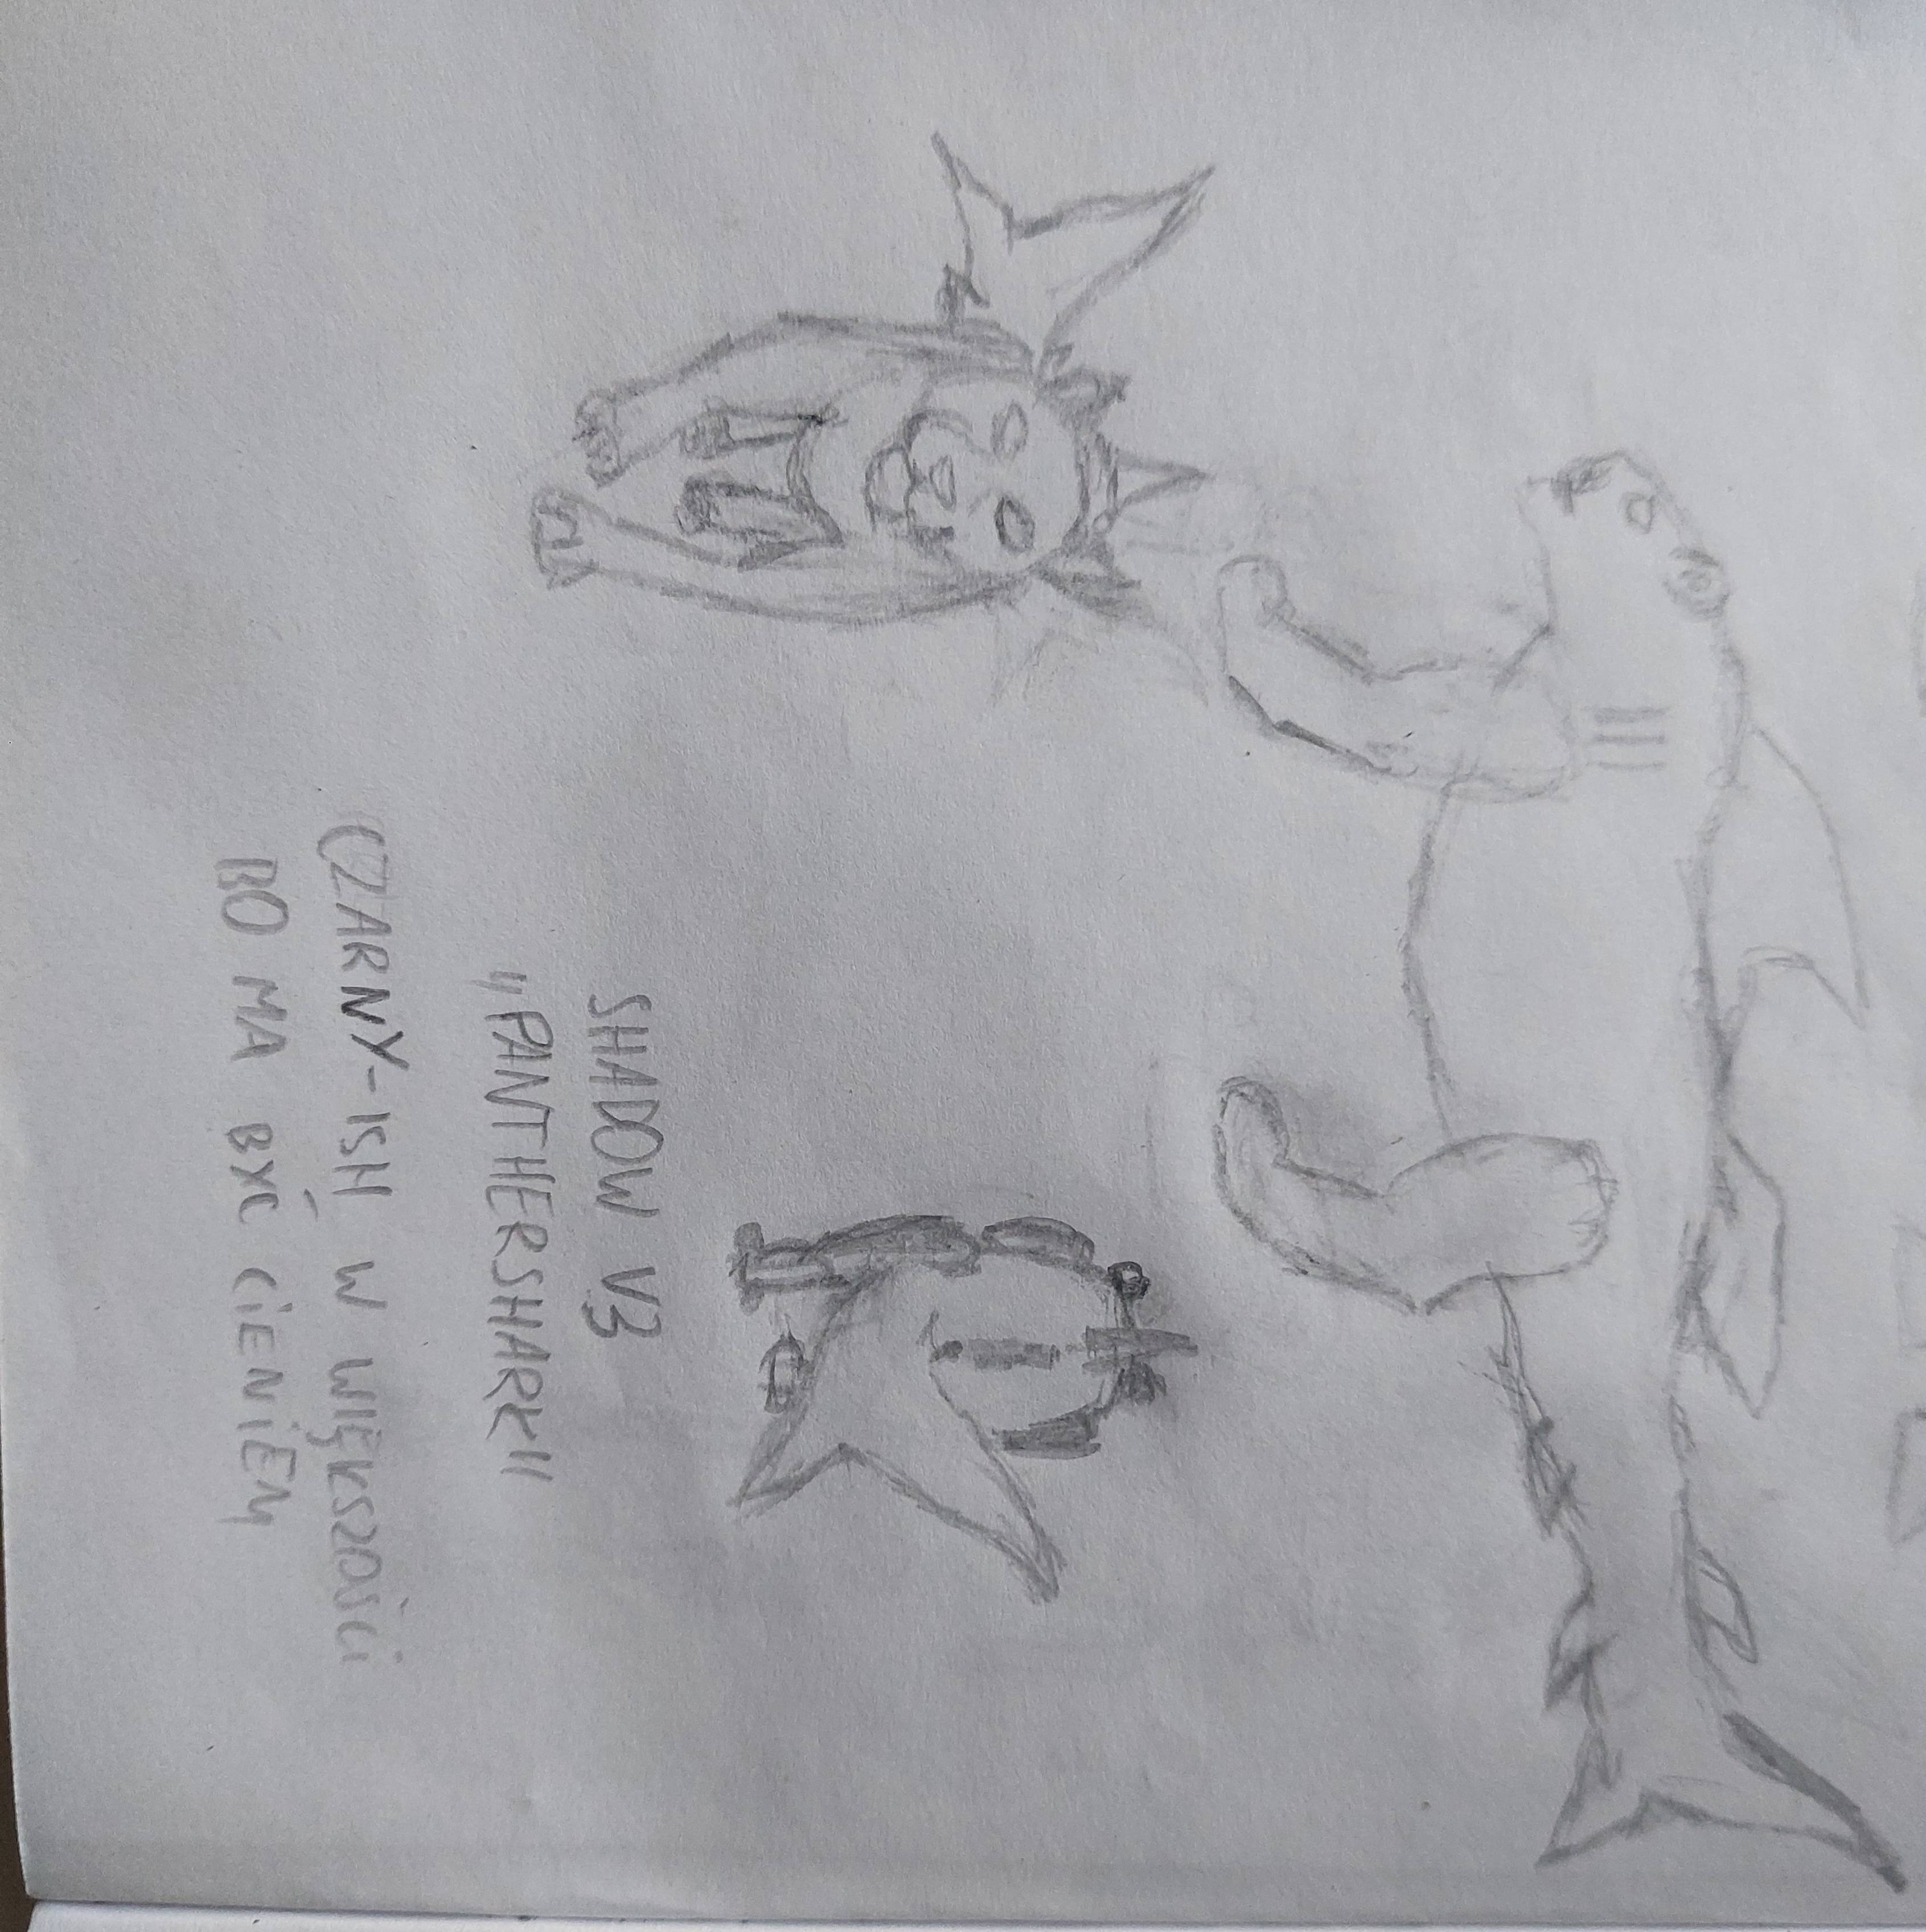 SHADOW V3
„PANTHERSHARK"
CZARNY-ISH W WIĘKSZOŚCi
BO MA BYĆ CiENiEM